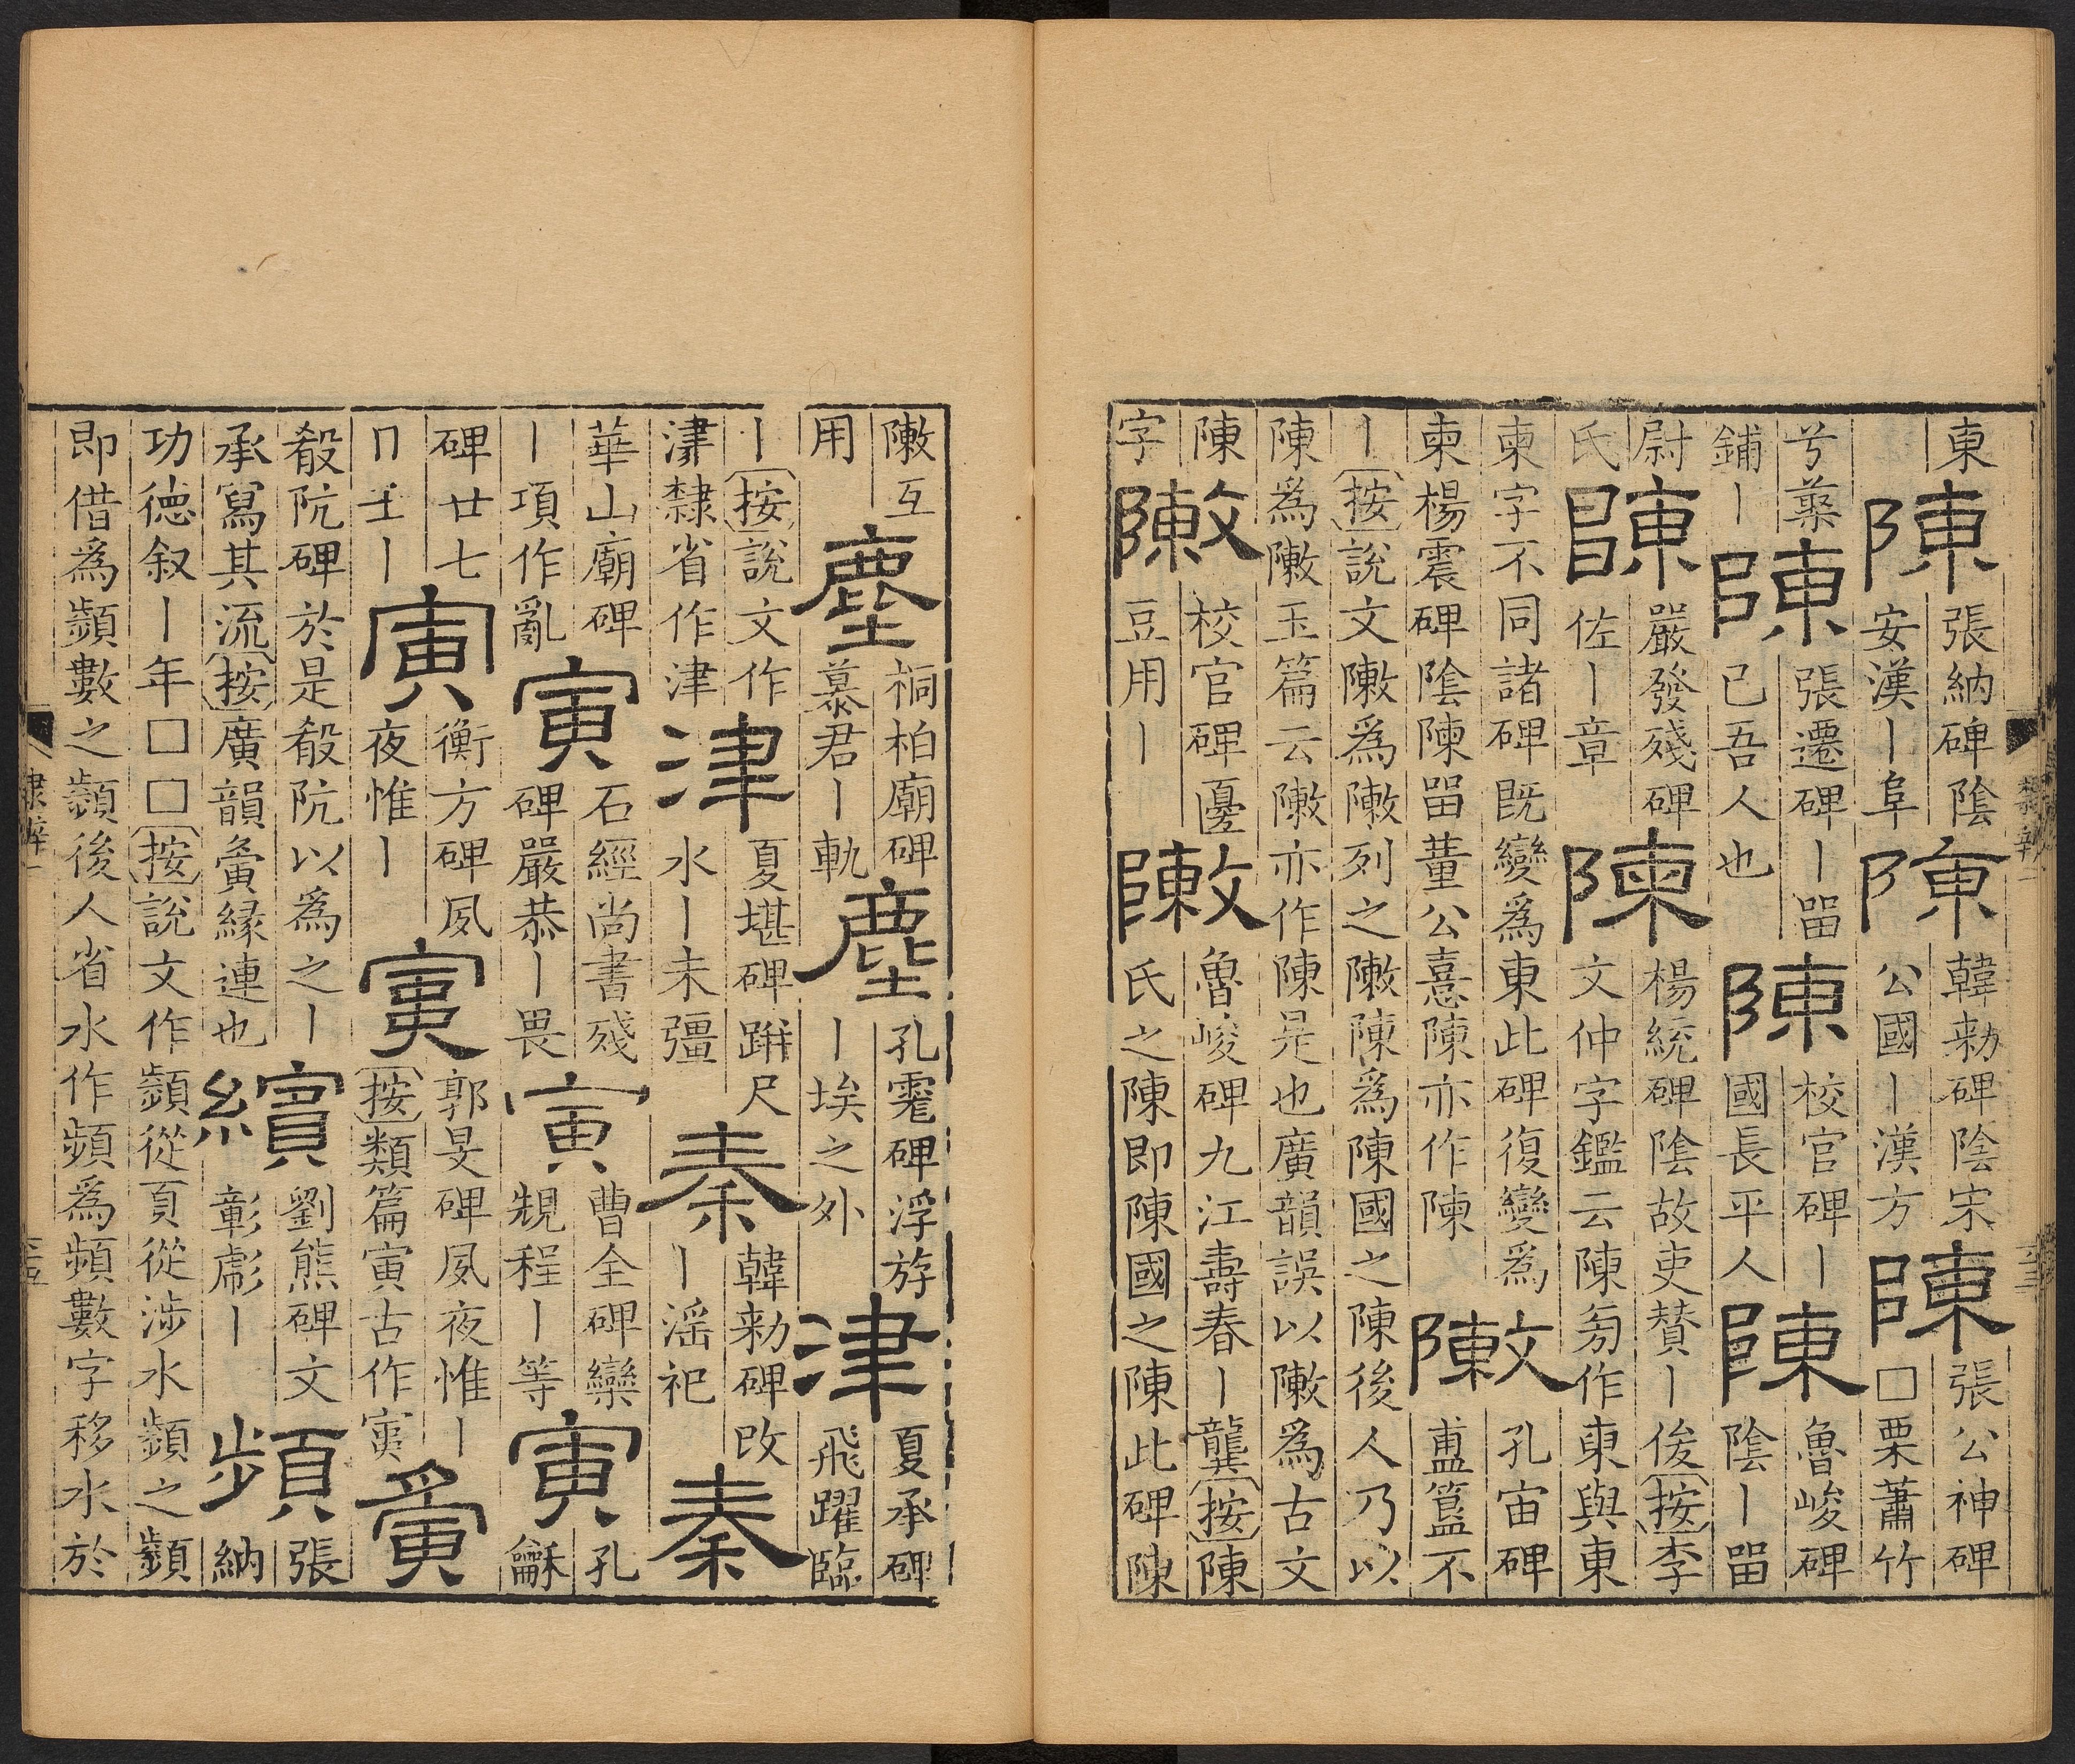 東
陳
張納碑陰
安漢丨阜
陳
韓勑碑陰宋
公國丨漢方
陳
張公神碑
□栗蕭竹
兮蘂
鋪丨
陳
張遷碑丨畱
己吾人也
陳
校官碑丨
國長平人
陳
魯峻碑
陰丨畱
尉
氏
陳
嚴發殘碑
佐丨章
陳
楊統碑陰故吏賛丨俊按李
文仲字鑑云陳匑作東與東
柬字不同諸碑旣變爲東此碑復變爲
柬楊震碑陰陳畱董公憙陳亦作陳
敶
孔宙碑
簠簋不
丨按說文敶爲敶列之敶陳爲陳國之陳後人乃以
陳爲敶玉篇云敶亦作陳是也廣韻誤以敶爲古文
陳
字
敶
校官碑優
豆用丨
敶
魯峻碑九江壽春丨龔按陳
氏之陳即陳國之陳此碑陳
敶互
用
塵
桐柏廟碑
慕君丨軌
塵
孔霓碑浮游
丨埃之外
津
夏承碑
飛躍臨
丨按說文作
津隸省作津
津
夏堪碑跰尺
水丨未彊
秦
韓勑碑改
丨淫祀
秦
華山廟碑
丨項作亂
寅
石經尚書殘
碑嚴恭丨畏
寅
曹全碑欒
規程丨等
寅
孔
龢
碑廿七
丨
寅
衡方碑夙
夜惟丨
寅
郭旻碑夙夜惟丨
按類篇寅古作𡩟
夤
殽阬碑於是殽阬以爲之丨
承寫其流按廣韻夤緣連也
繽
劉熊碑文
彰彪丨
頻
張
納
功德叙丨年□□按說文作瀕從頁從涉水瀕之瀕
即借爲瀕數之瀕後人省水作頻爲頻數字移水於